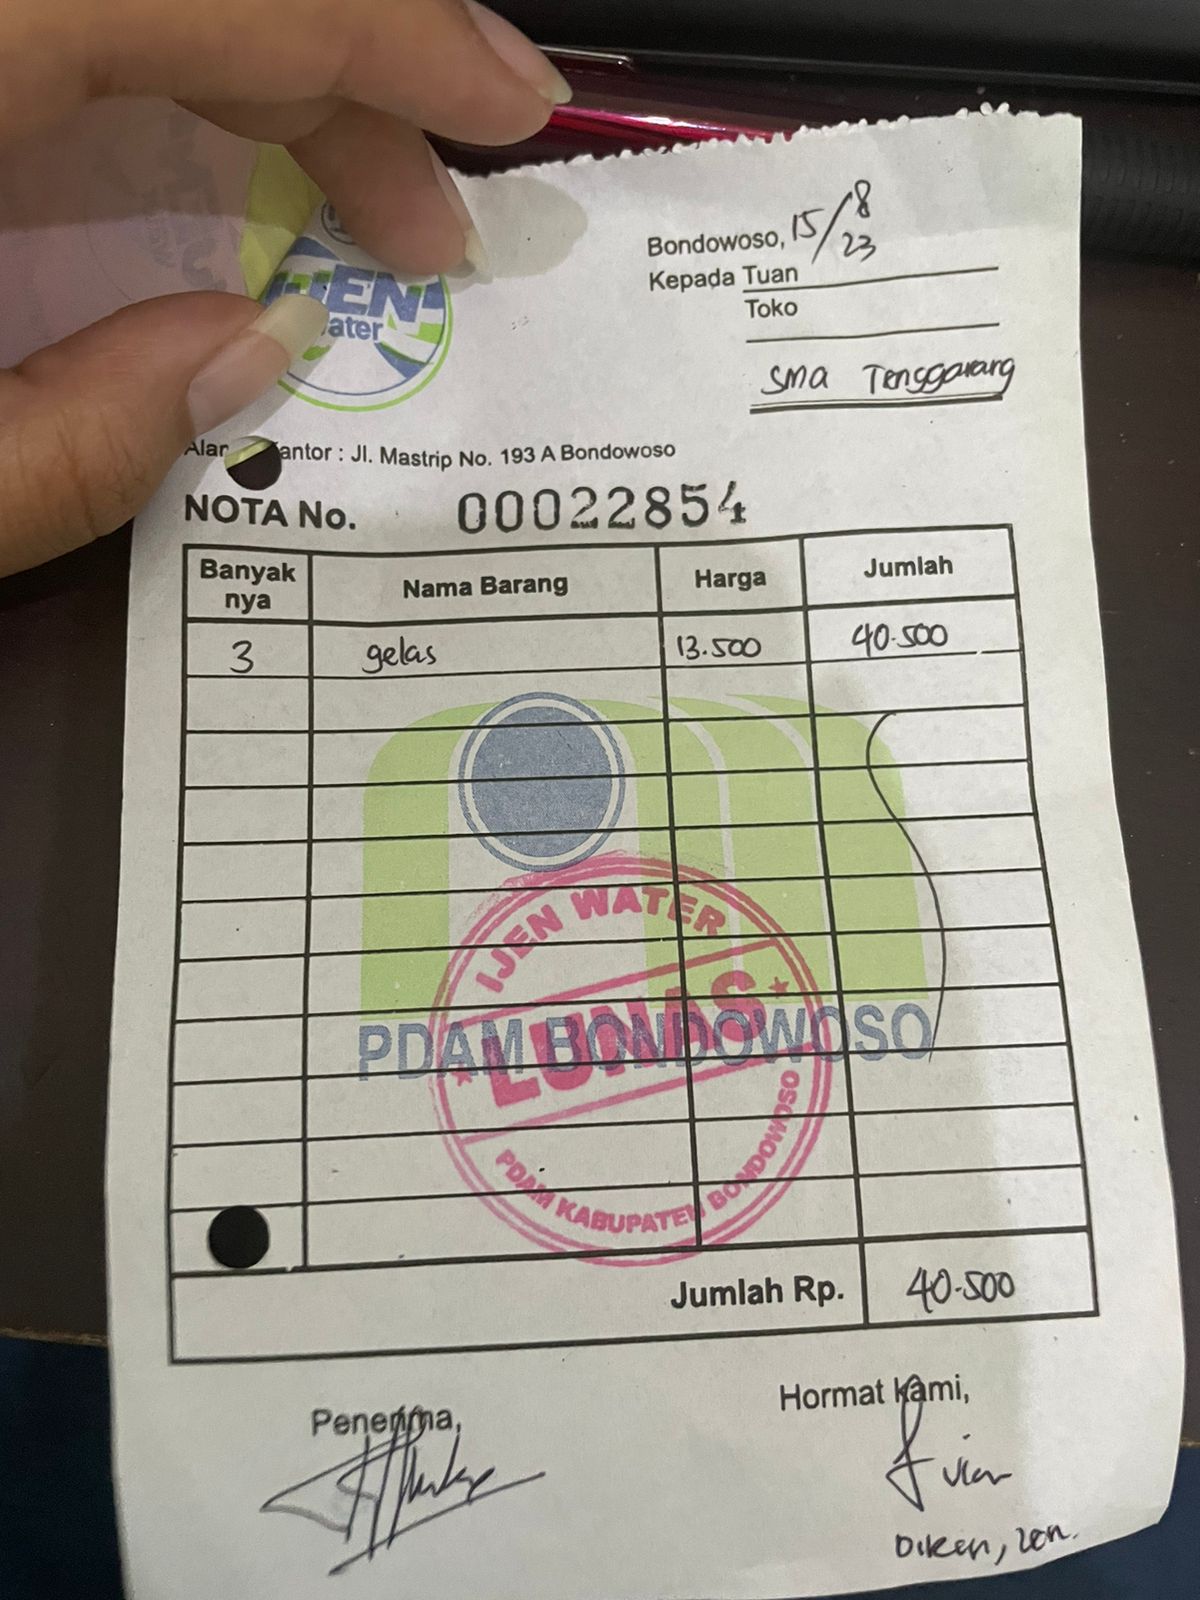 IJEN
Water
Bondowoso, 15/8/23
Kepada Tuan
Toko
SMA Tenggarang
Alam Kantor : Jl. Mastrip No. 193 A Bondowoso
NOTA No. 00022854
Banyak nya Nama Barang Harga Jumlah
3 gelas 13.500 40.500
IJEN WATER
LUNAS
PDAM BONDOWOSO
PDAM KABUPATEN BONDOWOSO
Jumlah Rp. 40.500
Penerima, Hormat Kami,